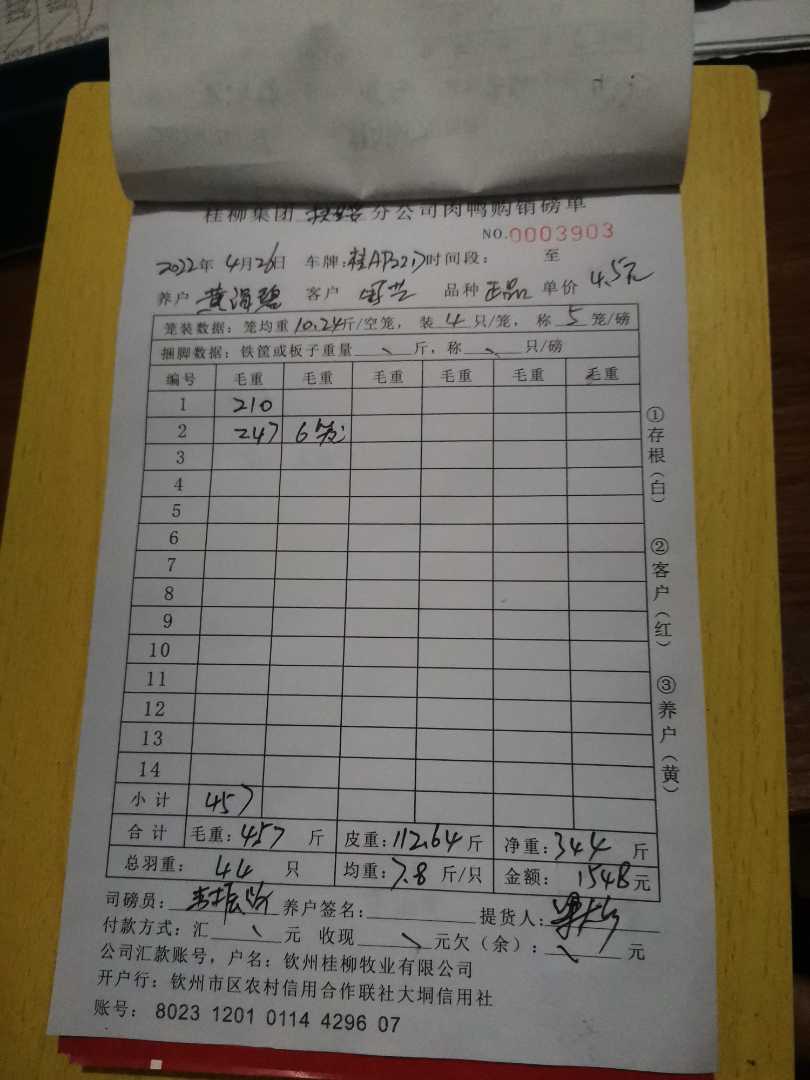 桂柳集团 分公司肉鸭购销磅单
NO.0003903
2022年 4月26日 车牌: 时间段: 至
养户 黄 客户 品种 正品 单价 4.5元
笼装数据: 笼均重 10.24斤/空笼, 装 4 只/笼, 称 5 笼/磅
捆脚数据: 铁筐或板子重量 斤, 称 只/磅
编号 毛重 毛重 毛重 毛重 毛重 毛重
1 210
2 247 6笼
3
4
5
6
7
8
9
10
11
12
13
14
小计 457
合计 毛重: 457 斤 皮重: 112.64 斤 净重: 344 斤
总羽重: 44 只 均重: 7.8 斤/只 金额: 1548元
司磅员: 李振 养户签名: 提货人:
付款方式: 汇 元 收现 元欠(余): 元
公司汇款账号, 户名: 钦州桂柳牧业有限公司
开户行: 钦州市区农村信用合作联社大垌信用社
账号: 8023 1201 0114 4296 07
①存根(白) ②客户(红) ③养户(黄)